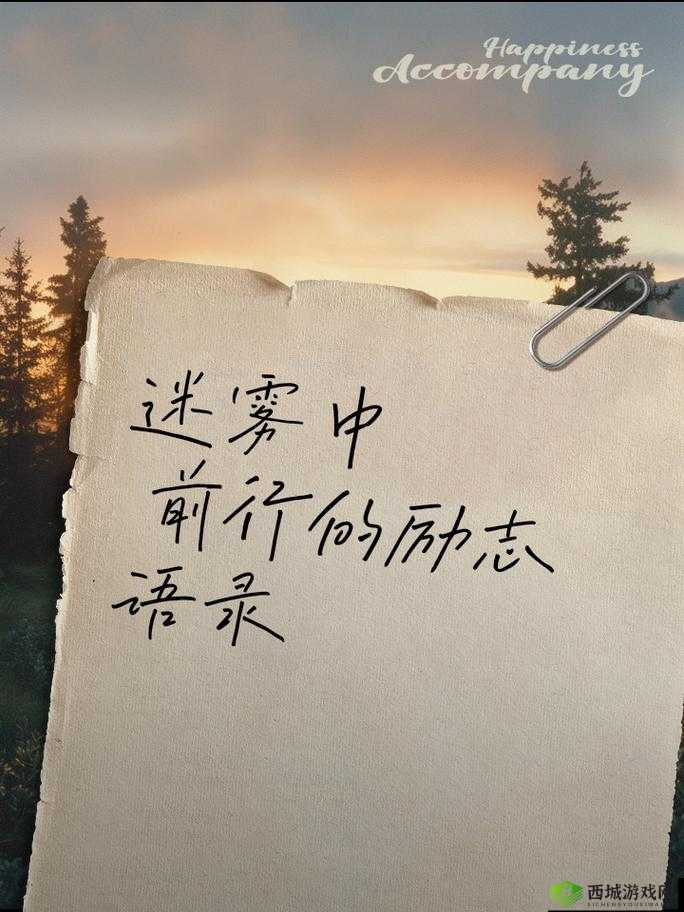 Happiness
Accompany
迷雾中
前行的励志
语录
西城游戏网